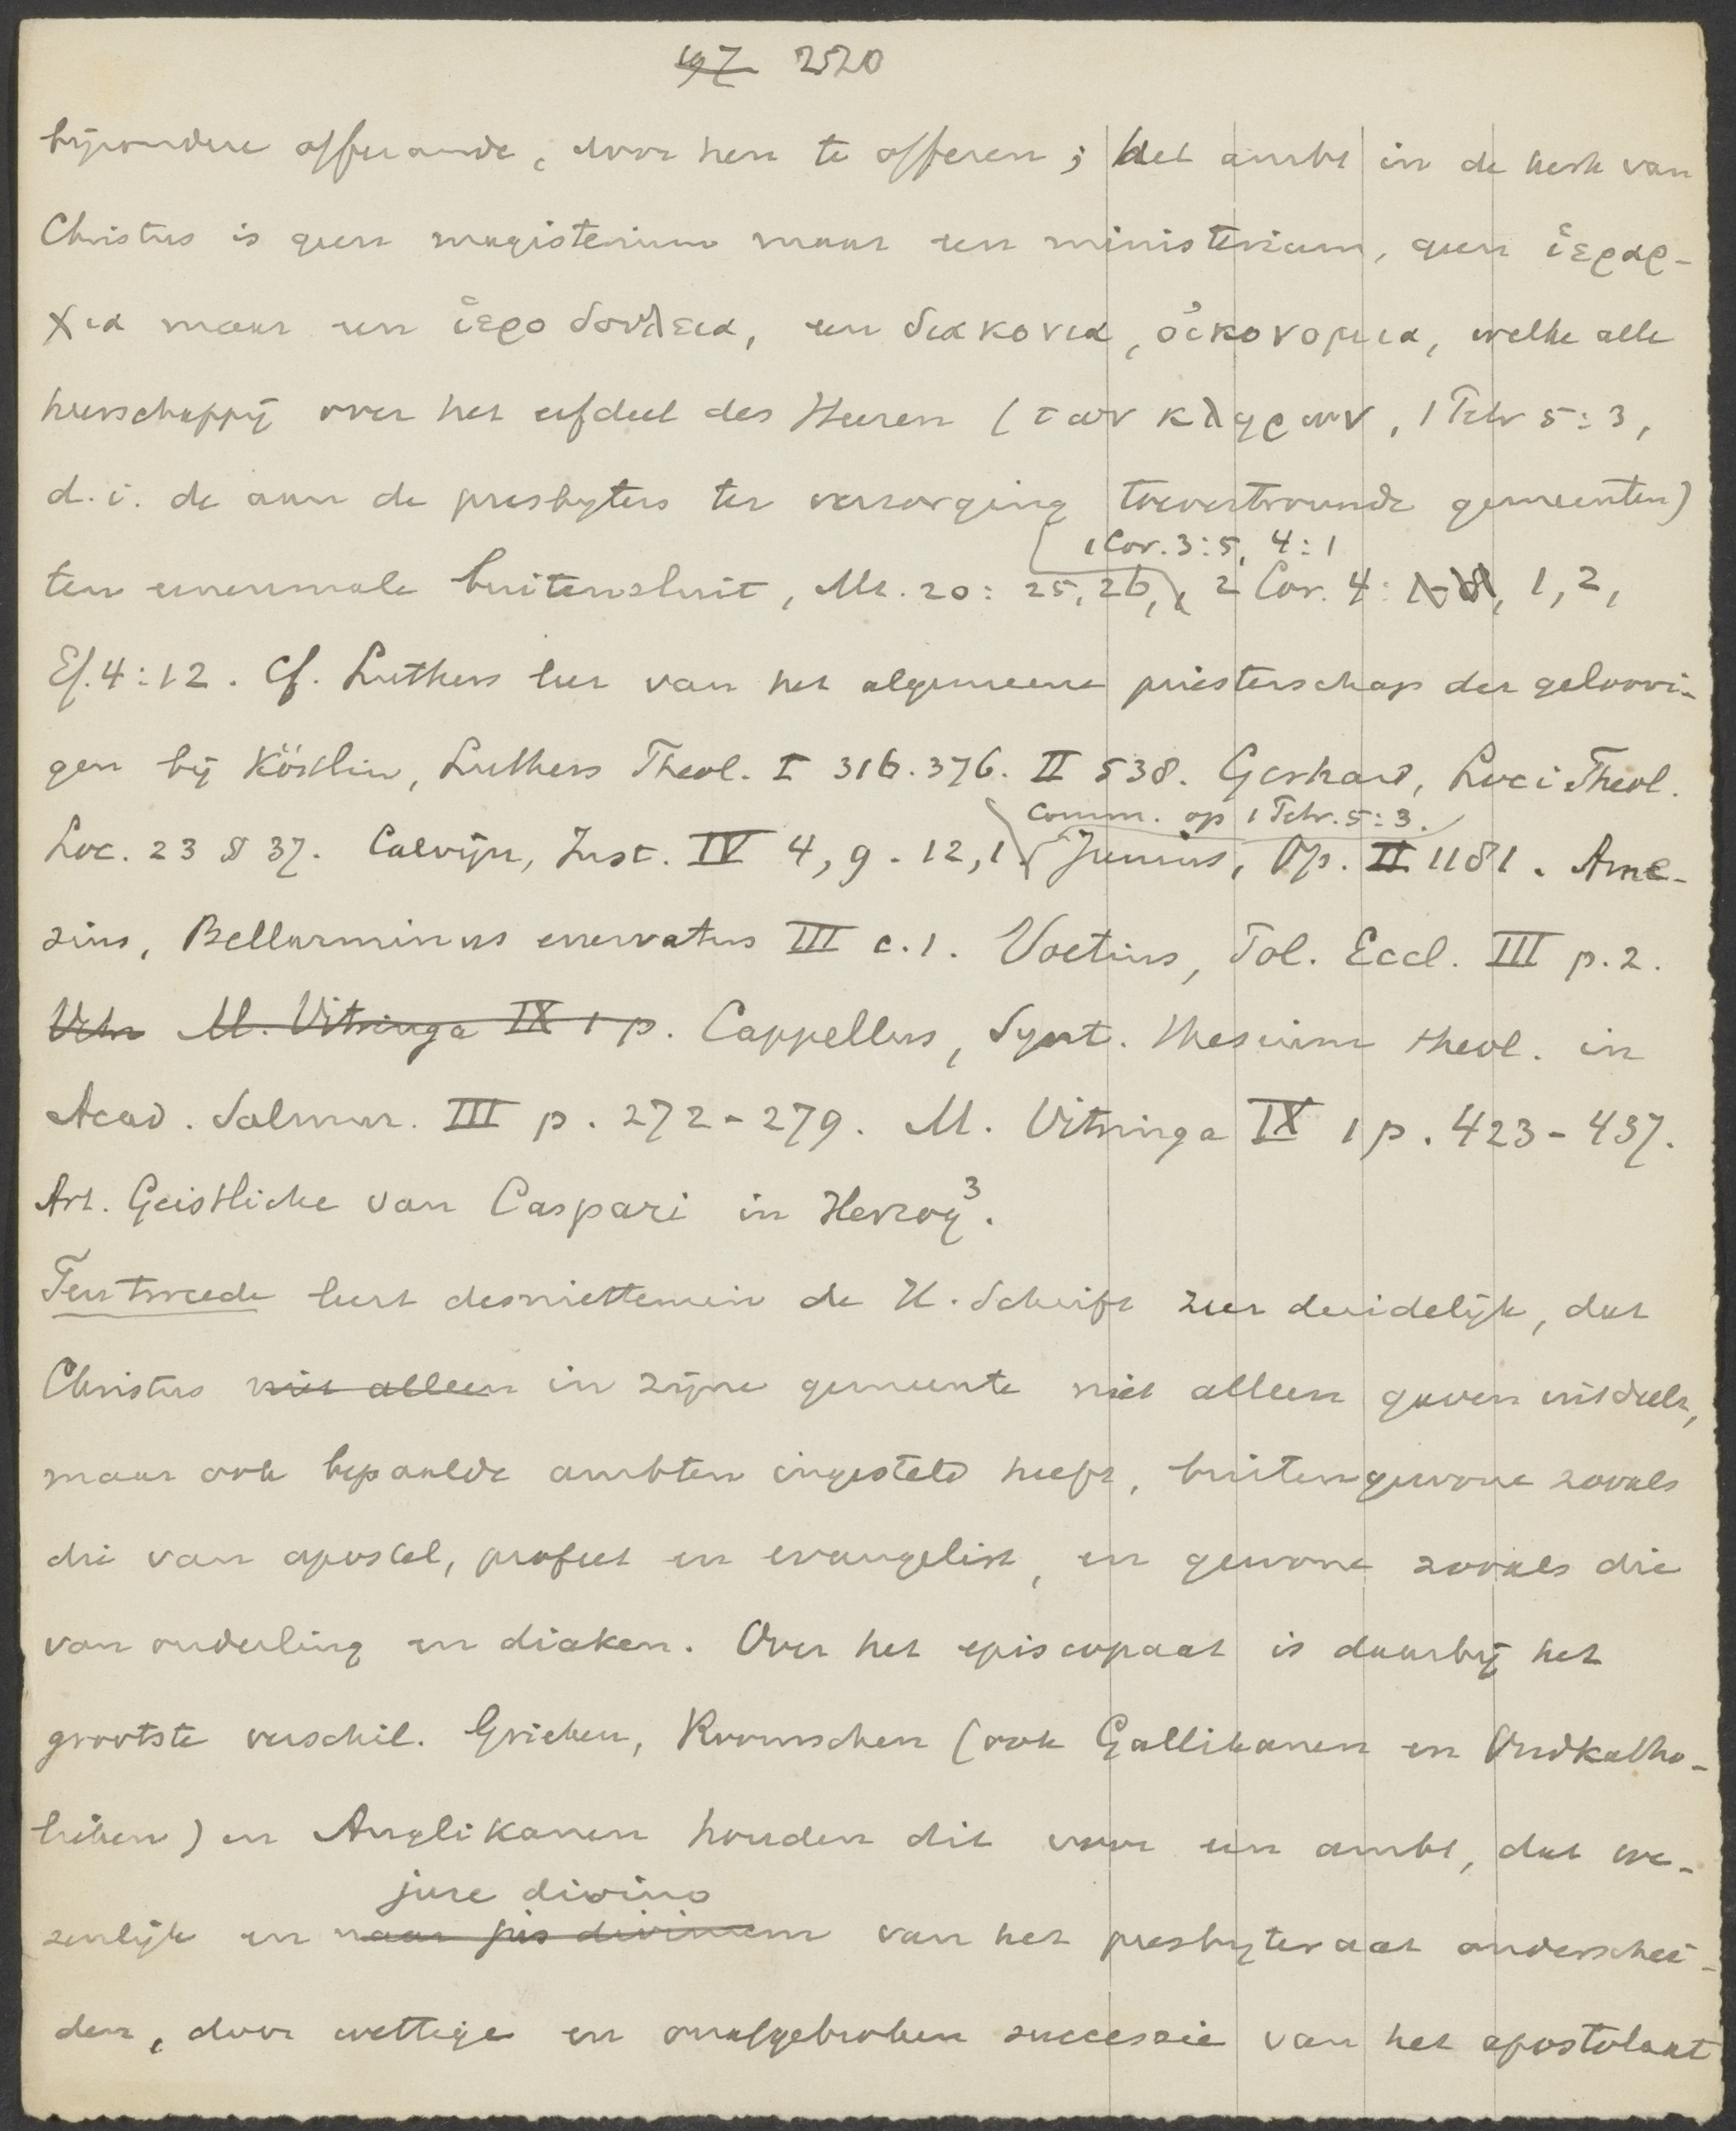 197 2520
bijzondere offerande, door hen te offeren; het ambt in de kerk van
Christus is geen magisterium maar een ministerium, geen ἱεραρ-
χια maar een ἱεροδουλεια, een διακονια, οἰκονομια, welke alle
heerschappij over het erfdeel des Heeren (των κληρων, 1 Petr 5:3,
d.i. de aan de presbyters ter verzorging toevertrouwde gemeenten)
1 Cor. 3:5, 4:1
ten eenenmale buitensluit, Mt. 20: 25, 26, 2 Cor. 4: 1, 2,
Ef. 4:12. Cf. Luthers leer van het algemeene priesterschap der geloovi-
gen bij Köstlin, Luthers Theol. I 316. 376. II 538. Gerhard, Loci Theol.
Comm. op 1 Petr. 5:3.
Loc. 23 § 37. Calvijn, Inst. IV 4, 9. 12, 1. Junius, Op. II 1181. Ame-
sius, Bellarminus enervatus III c. 1. Voetius, Pol. Eccl. III p. 2.
M. Vitringa IX 1 p. Cappellus, Synt. thesium theol. in
Acad. Salmur. III p. 272-279. M. Vitringa IX 1 p. 423-437.
Art. Geistliche van Caspari in Herzog³.
Ten tweede leert desniettemin de H. Schrift zeer duidelijk, dat
Christus niet alleen in zijne gemeente niet alleen gaven uitdeelt,
maar ook bepaalde ambten ingesteld heeft, buitengewone zooals
die van apostel, profeet en evangelist, en gewone zooals die
van ouderling en diaken. Over het episcopaat is daarbij het
grootste verschil. Grieken, Roomschen (ook Gallikanen en Oudkatho-
lieken) en Anglikanen houden dit voor een ambt, dat we-
jure divino
zenlijk en naar jus divinum van het presbyteraat onderschei-
den, door wettige en onafgebroken successie van het apostolaat